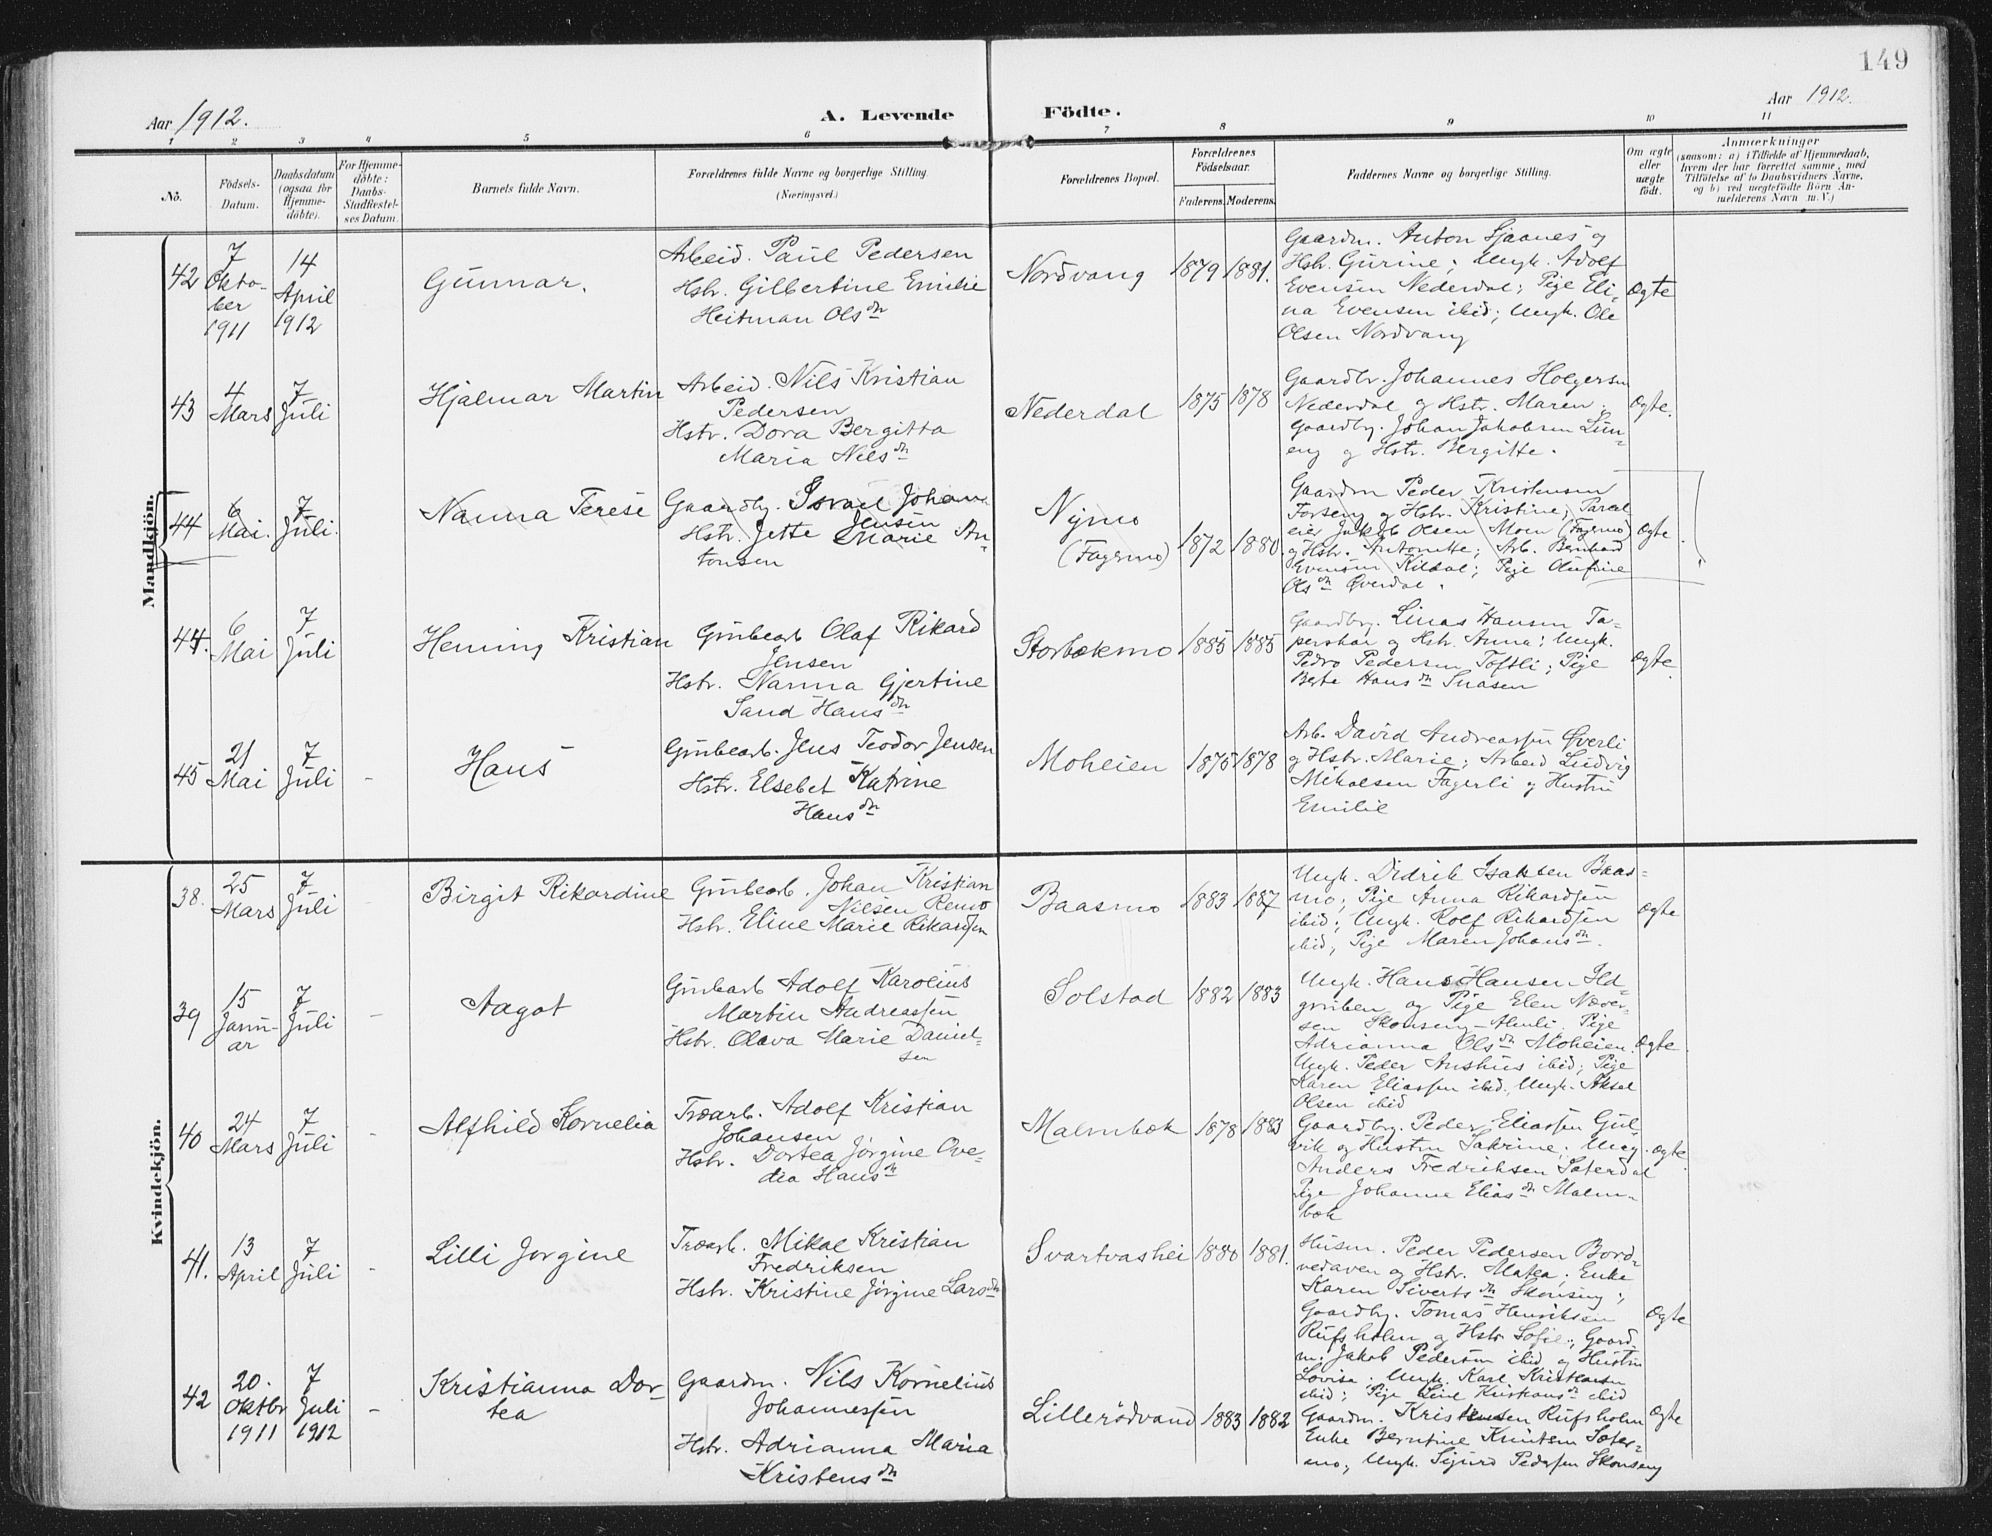 149
Aar 1912.
A. Levende Födte.
Aar 1912.
1 2 3 4 5 6 7 8 9 10 11
No.
Födsels-
Datum.
Daabsdatum
(ogsaa for
Hjemme-
döbte).
For Hjemme-
döbte:
Daabs-
Stadfestel-
ses Datum.
Barnets fulde Navn.
Forældrenes fulde Navne og borgerlige Stilling.
(Næringsvei.)
Forældrenes Bopæl.
Forældrenes
Födselsaar.
Faderens. Moderens.
Faddernes Navne og borgerlige Stilling.
Om ægte
eller
uægte
födt.
Anmærkninger
(saasom: a) i Tilfælde af Hjemmedaab,
hvem der har forrettet samme, med
Tilföielse af to Daabsvidners Navne,
og b) ved uægtefödte Börn An-
melderens Navn m. V.)
Mandkjön.
42
7
Okto-
ber
1911
14
April
1912
Gunnar.
Arbeid. Paul Pedersen
Hstr. Gilbertine Emilie
Heitman Olsdtr
Nordvang
1879 1881.
Gaardm. Anton Hjaanes og
Hstr. Gurine; Ungk. Adolf
Evensen Nederdal; Pige Eli-
na Evensen ibid; Ungk. Ole
Olsen Nordvang
Ægte
43
4
Mars
7
Juli
Hjalmar Martin
Arbeid. Nils Kristian
Pedersen
Hstr. Dora Bergitta
Maria Nilsdtr
Nederdal
1875 1878
Gaardbr. Johannes Holgersen
Nederdal og Hstr. Maren.
Gaardbr. Johan Jakobsen Lun-
eng og Hstr. Bergitte.
Ægte.
44
6
Mai.
7
Juli.
Nanna Terese
Gaardbr. Israel Johan
Jensen
Hstr. Jette Marie An-
tonsen
Nymo
(Fagermo)
1872 1880
Gaardm Peder Kristensen
Forseng og Hstr. Kristine; Parcel
eier Jakob Olsen Moen (Fagermo)
og Hstr. Antonette; Arb. Bernhard
Evensen Kildal; Pige Olufine
Olsdtr Øverdal.
Ægte.
44.
6
Mai
7
Juli
Heming Kristian
Grubearb Olaf Rikard
Jensen
Hstr. Nanna Gjertine
Sand Hansdtr
Storbækmo
1885 1885
Gaardbr. Linas Hansen Ta-
perskar og Hstr. Anna; Ungk.
Pedro Pedersen Toftli; Pige
Berte Hansdtr Snasen
Ægte.
45
21
Mai
7
Juli
-
Hans
Grubearb. Jens Teodor Jensen
Hstr. Elsebet Katrine
Hansdtr
Moheien
1875 1878
Arb. David Andreassen Øverli
og Hstr. Marie; Arbeid Ludvig
Mikalsen Fagerli og Hustru
Emilie
Kvindekjön.
38.
25
Mars
7
Juli
Birgit Rikardine
Grubearb. Johan Kristian
Nilsen Remo
Hstr. Eline Marie Rikardsen
Baasmo
1883 1887
Ungk. Didrik Isaksen Baas-
mo; Pige Anna Rikardsen
ibid; Ungk. Rolf Rikardsen
ibid, Pige Maren Johansdtr.
Ægte
39
15
Janu-
ar
7
Juli
-
Aagot
Grubearb Adolf Karolius
Martin Andreassen
Hstr. Olava Marie Daniel-
sen
Solstad
1882 1883
Ungk. Hans Hansen Ild-
gruben og Pige Elen Næver-
sen Skonseng-Almli. Pige
Adrianna Olsdtr Moheien.
Ungk. Peder Aushus ibid; Pige
Karen Eliassen ibid. Ungk. Aksal
Olsen ibid
Ægte.
40
24
Mars
7
Juli
-
Alfhild Kornelia
Træarb. Adolf Kristian
Johansen
Hstr. Dortea Jørgine Ove-
dia Hansdtr
Malmbæk
1878 1883
Gaardbr. Peder Eliassen Gul-
vik og Hustru Sakrine; Ung.
Anders Fredriksen Sæterdal
Pige Johanne Eliasdtr Malm-
bæk
Ægte.
41.
13
April
7
Juli
-
Lilli Jorgine
Træarb. Mikal Kristian
Fredriksen
Hstr. Kristine Jørgine Larsdtr
Svartvashei
1880 1881.
Husm. Peder Pedersen Bord-
vedaven og Hstr. Matea; Enke
Karen Sivertsdtr Skonseng;
Gaardbr. Tomas Henriksen
Rufsholm og Hstr Sofie; Gaard
m. Jakob Pedersen ibid og Hustru
Lovise. Ungk. Karl Kristensen
ibid; Pige Line Kristiansdtr ibid
Ægte
42
20.
Oktbr
1911
7
Juli
1912
-
Kristianna Dor-
tea
Gaardm. Nils Kornelius
Johannessen
Hstr. Adrianna Maria
Kristensdtr
Lillerødvand
1883 1882
Gaardm. Kristensen Rufsholm
Enke Berntine Knutsen Sæter-
mo; Ungk. Sigurd Pedersen Skonseng
Ægte